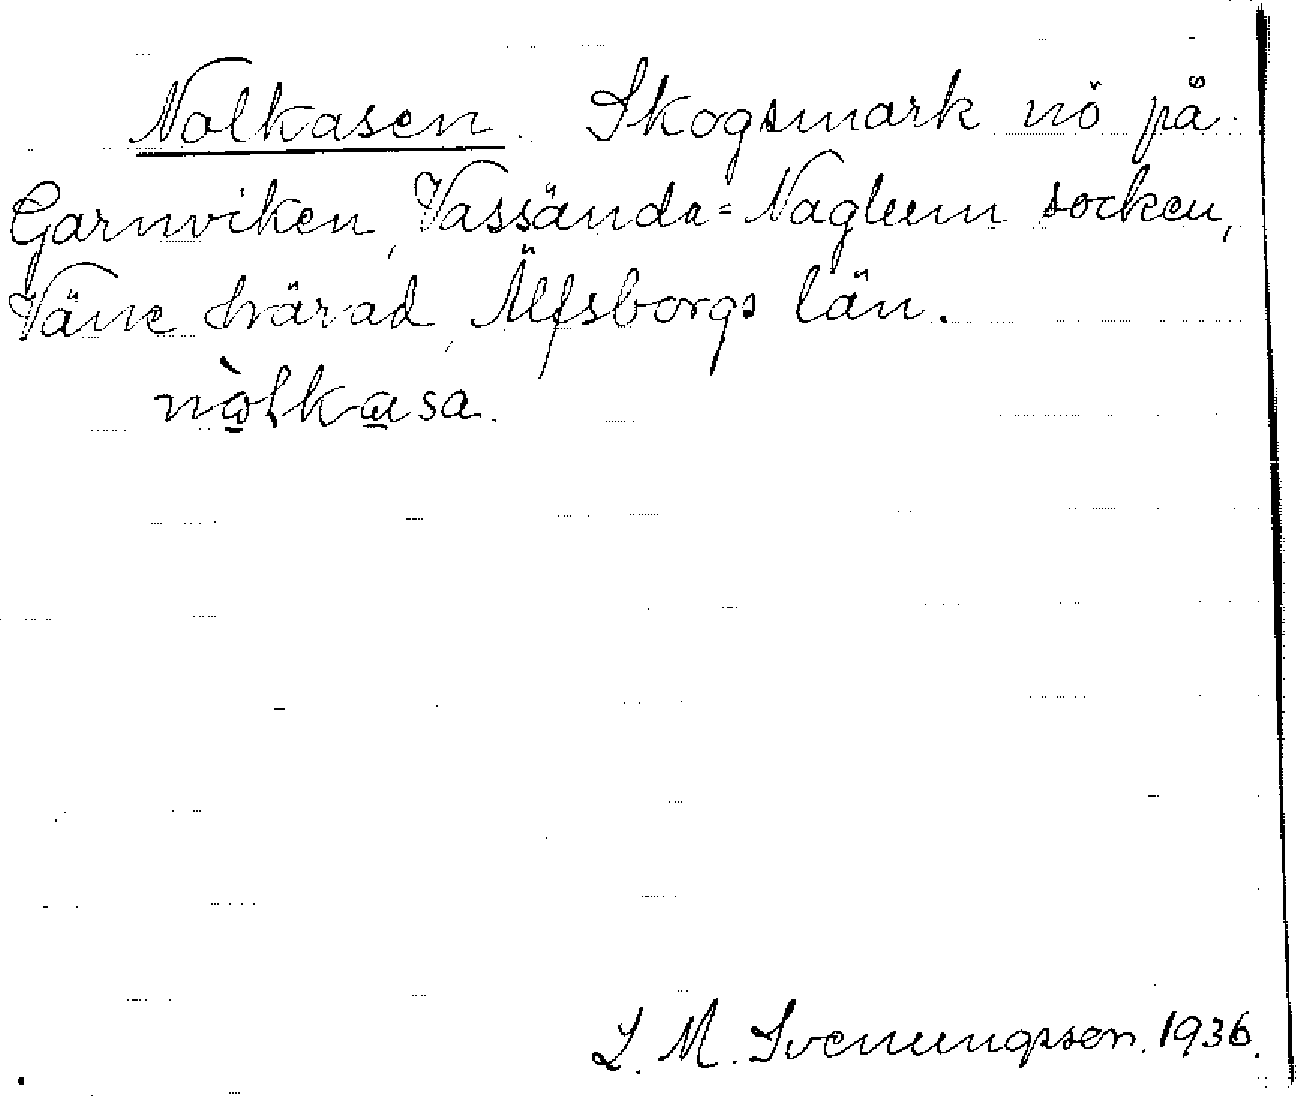 Nolkasen. Skogsmark nö på
Garnviken, Vassända=Naglum socken,
Väne härad, Älfsborgs län.
nòlkasa.
L. M. Svenungsson. 1936.